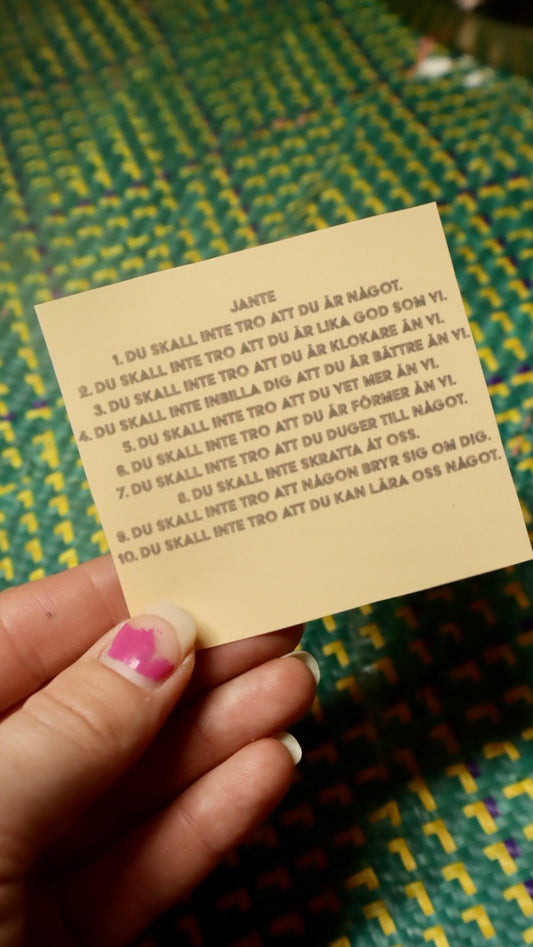 JANTE
1. DU SKALL INTE TRO ATT DU ÄR NÅGOT.
2. DU SKALL INTE TRO ATT DU ÄR LIKA GOD SOM VI.
3. DU SKALL INTE TRO ATT DU ÄR KLOKARE ÄN VI.
4. DU SKALL INTE INBILLA DIG ATT DU ÄR BÄTTRE ÄN VI.
5. DU SKALL INTE TRO ATT DU VET MER ÄN VI.
6. DU SKALL INTE TRO ATT DU ÄR FÖRMER ÄN VI.
7. DU SKALL INTE TRO ATT DU DUGER TILL NÅGOT.
8. DU SKALL INTE SKRATTA ÅT OSS.
9. DU SKALL INTE TRO ATT NÅGON BRYR SIG OM DIG.
10. DU SKALL INTE TRO ATT DU KAN LÄRA OSS NÅGOT.